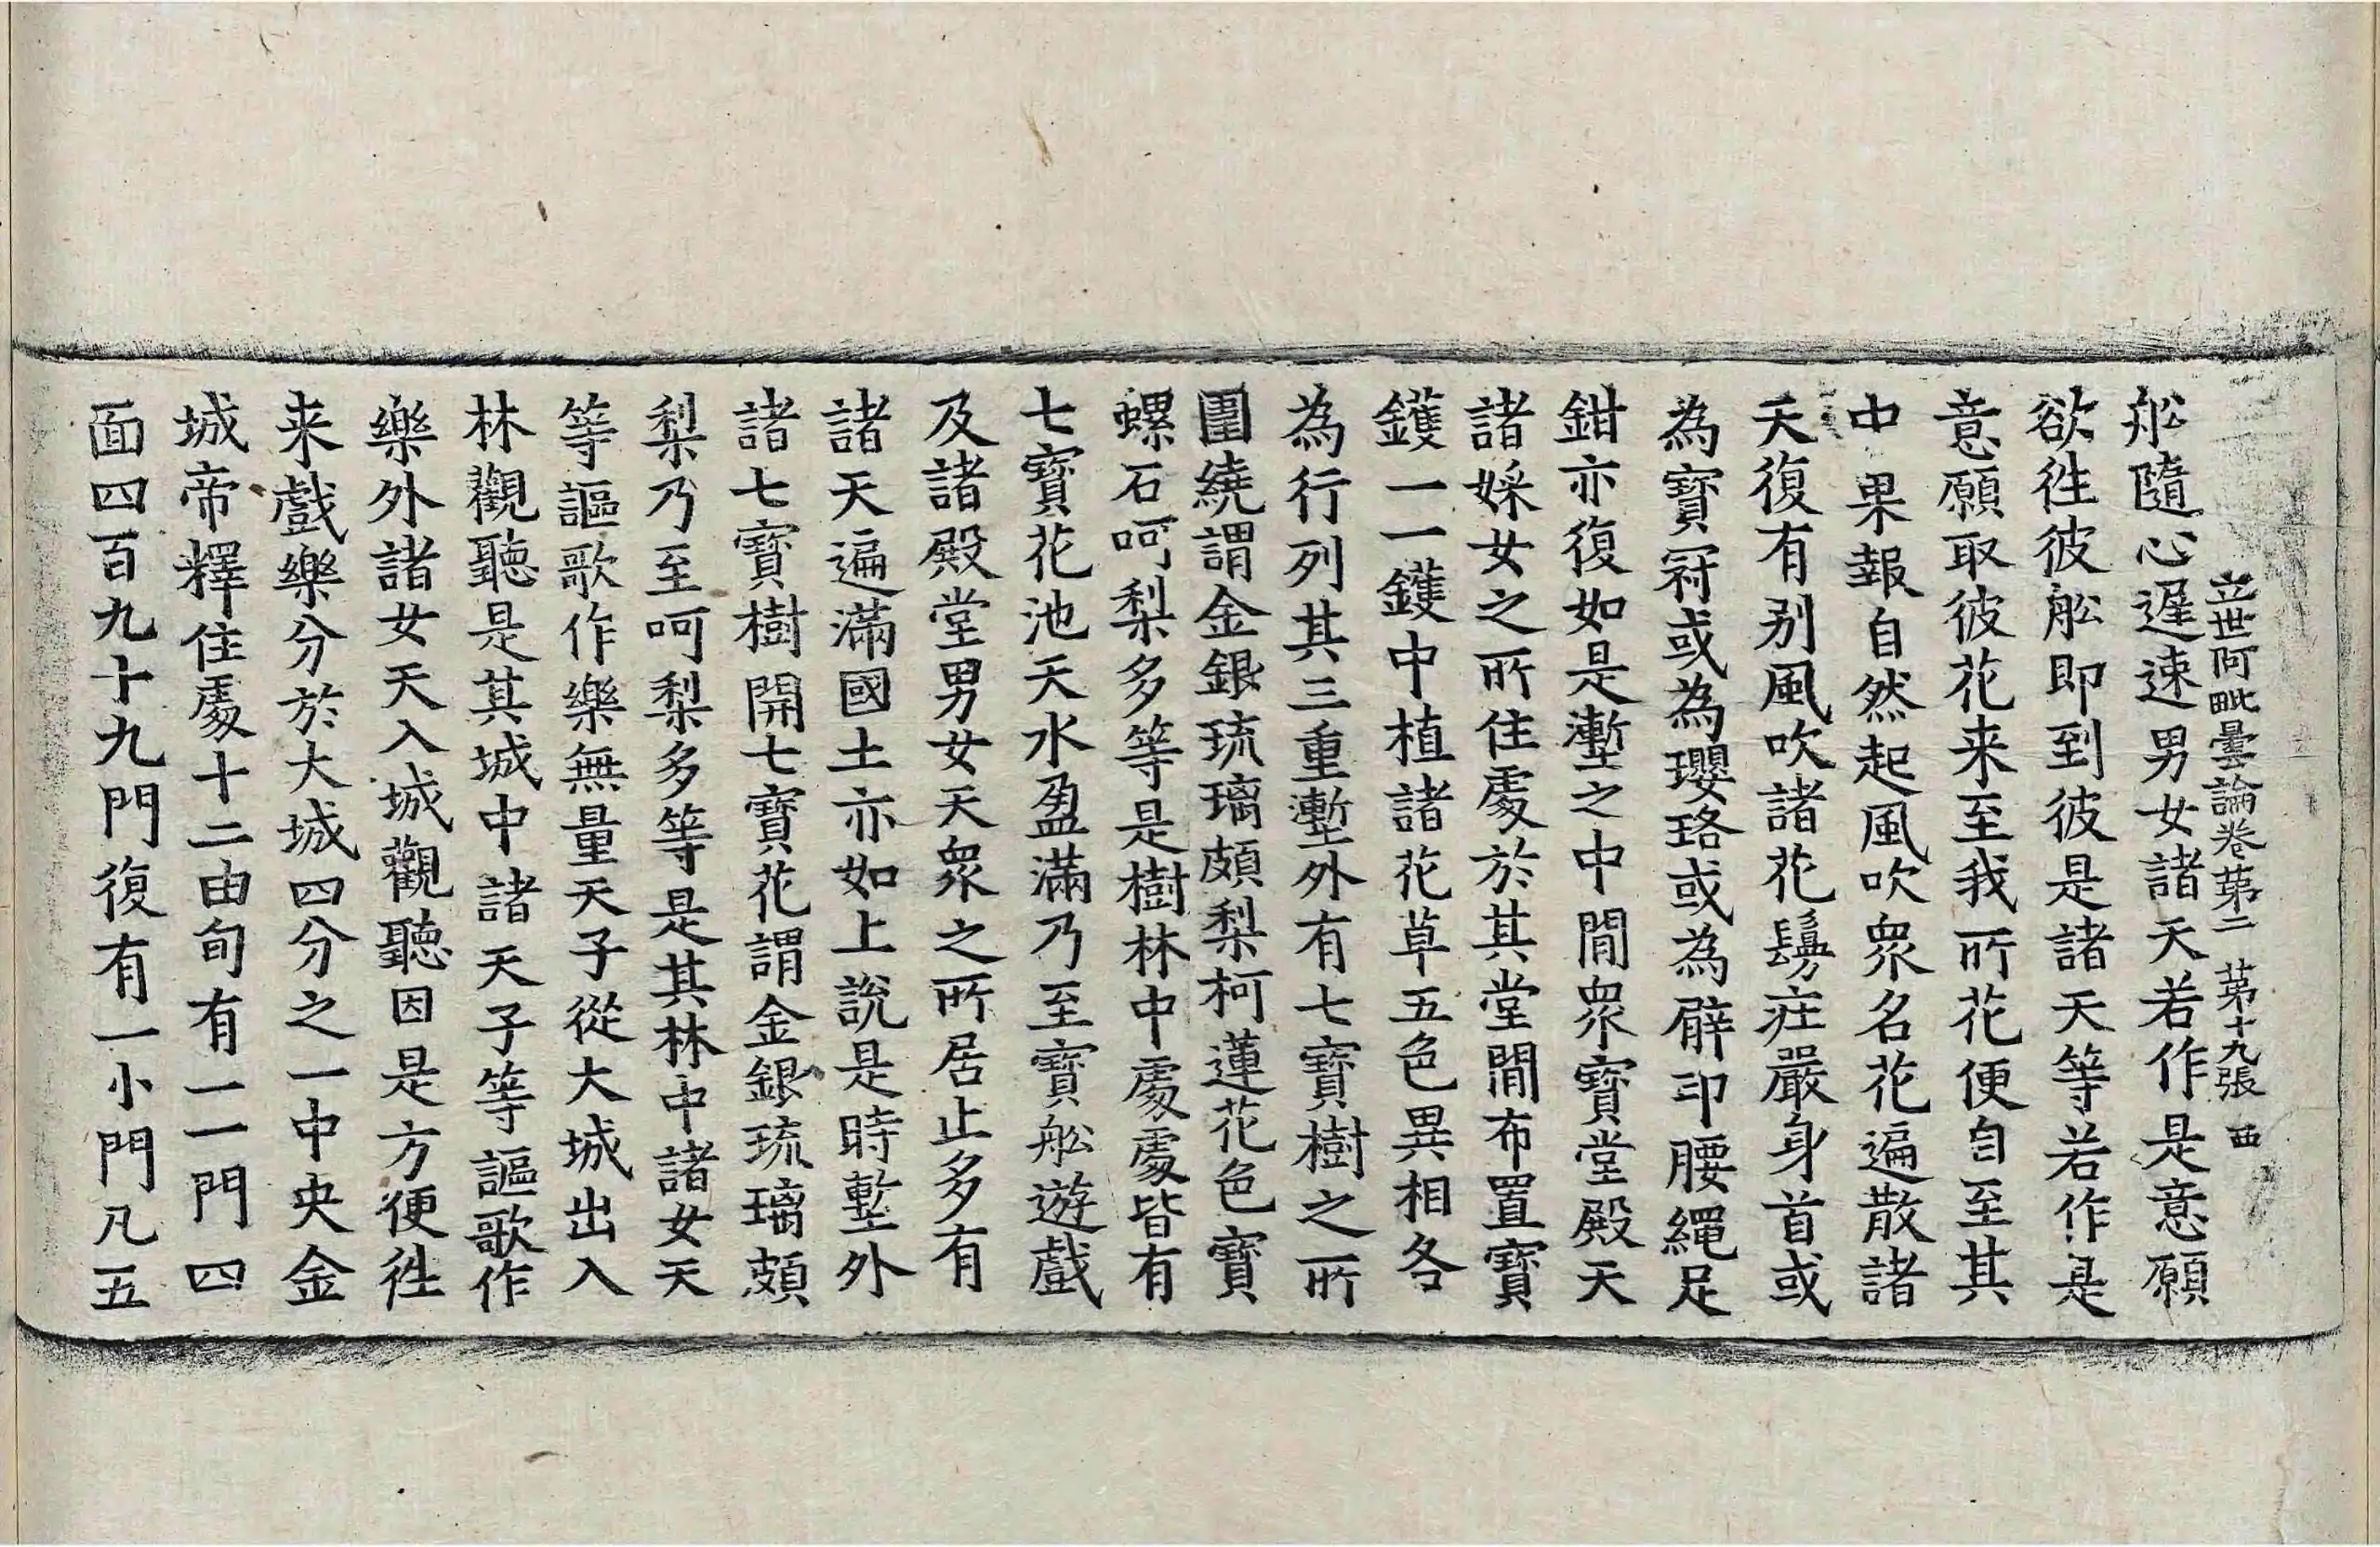 立世阿毗曇論卷苐二 苐十九張 西
舩隨心遲速男女諸天若作是意願
欲徃彼舩即到彼是諸天等若作是
意願取彼花来至我所花便自至其
中果報自然起風吹衆名花遍散諸
天復有别風吹諸花鬘莊嚴身首或
為寶冠或為瓔珞或為臂印腰繩足
鉗亦復如是壍之中間衆寶堂殿天
諸婇女之所住處於其堂間布置寶
鑊一一鑊中植諸花草五色異相各
為行列其三重壍外有七寶樹之所
圍繞謂金銀琉璃頗梨柯蓮花色寶
螺石呵梨多等是樹林中處處皆有
七寶花池天水盈滿乃至寶舩遊戲
及諸殿堂男女天衆之所居止多有
諸天遍滿國土亦如上說是時壍外
諸七寶樹開七寶花謂金銀琉璃頗
梨乃至呵梨多等是其林中諸女天
等謳歌作樂無量天子從大城出入
林觀聽是其城中諸天子等謳歌作
樂外諸女天入城觀聽因是方便徃
来戲樂分於大城四分之一中央金
城帝釋住處十二由旬有一一門四
面四百九十九門復有一小門凡五